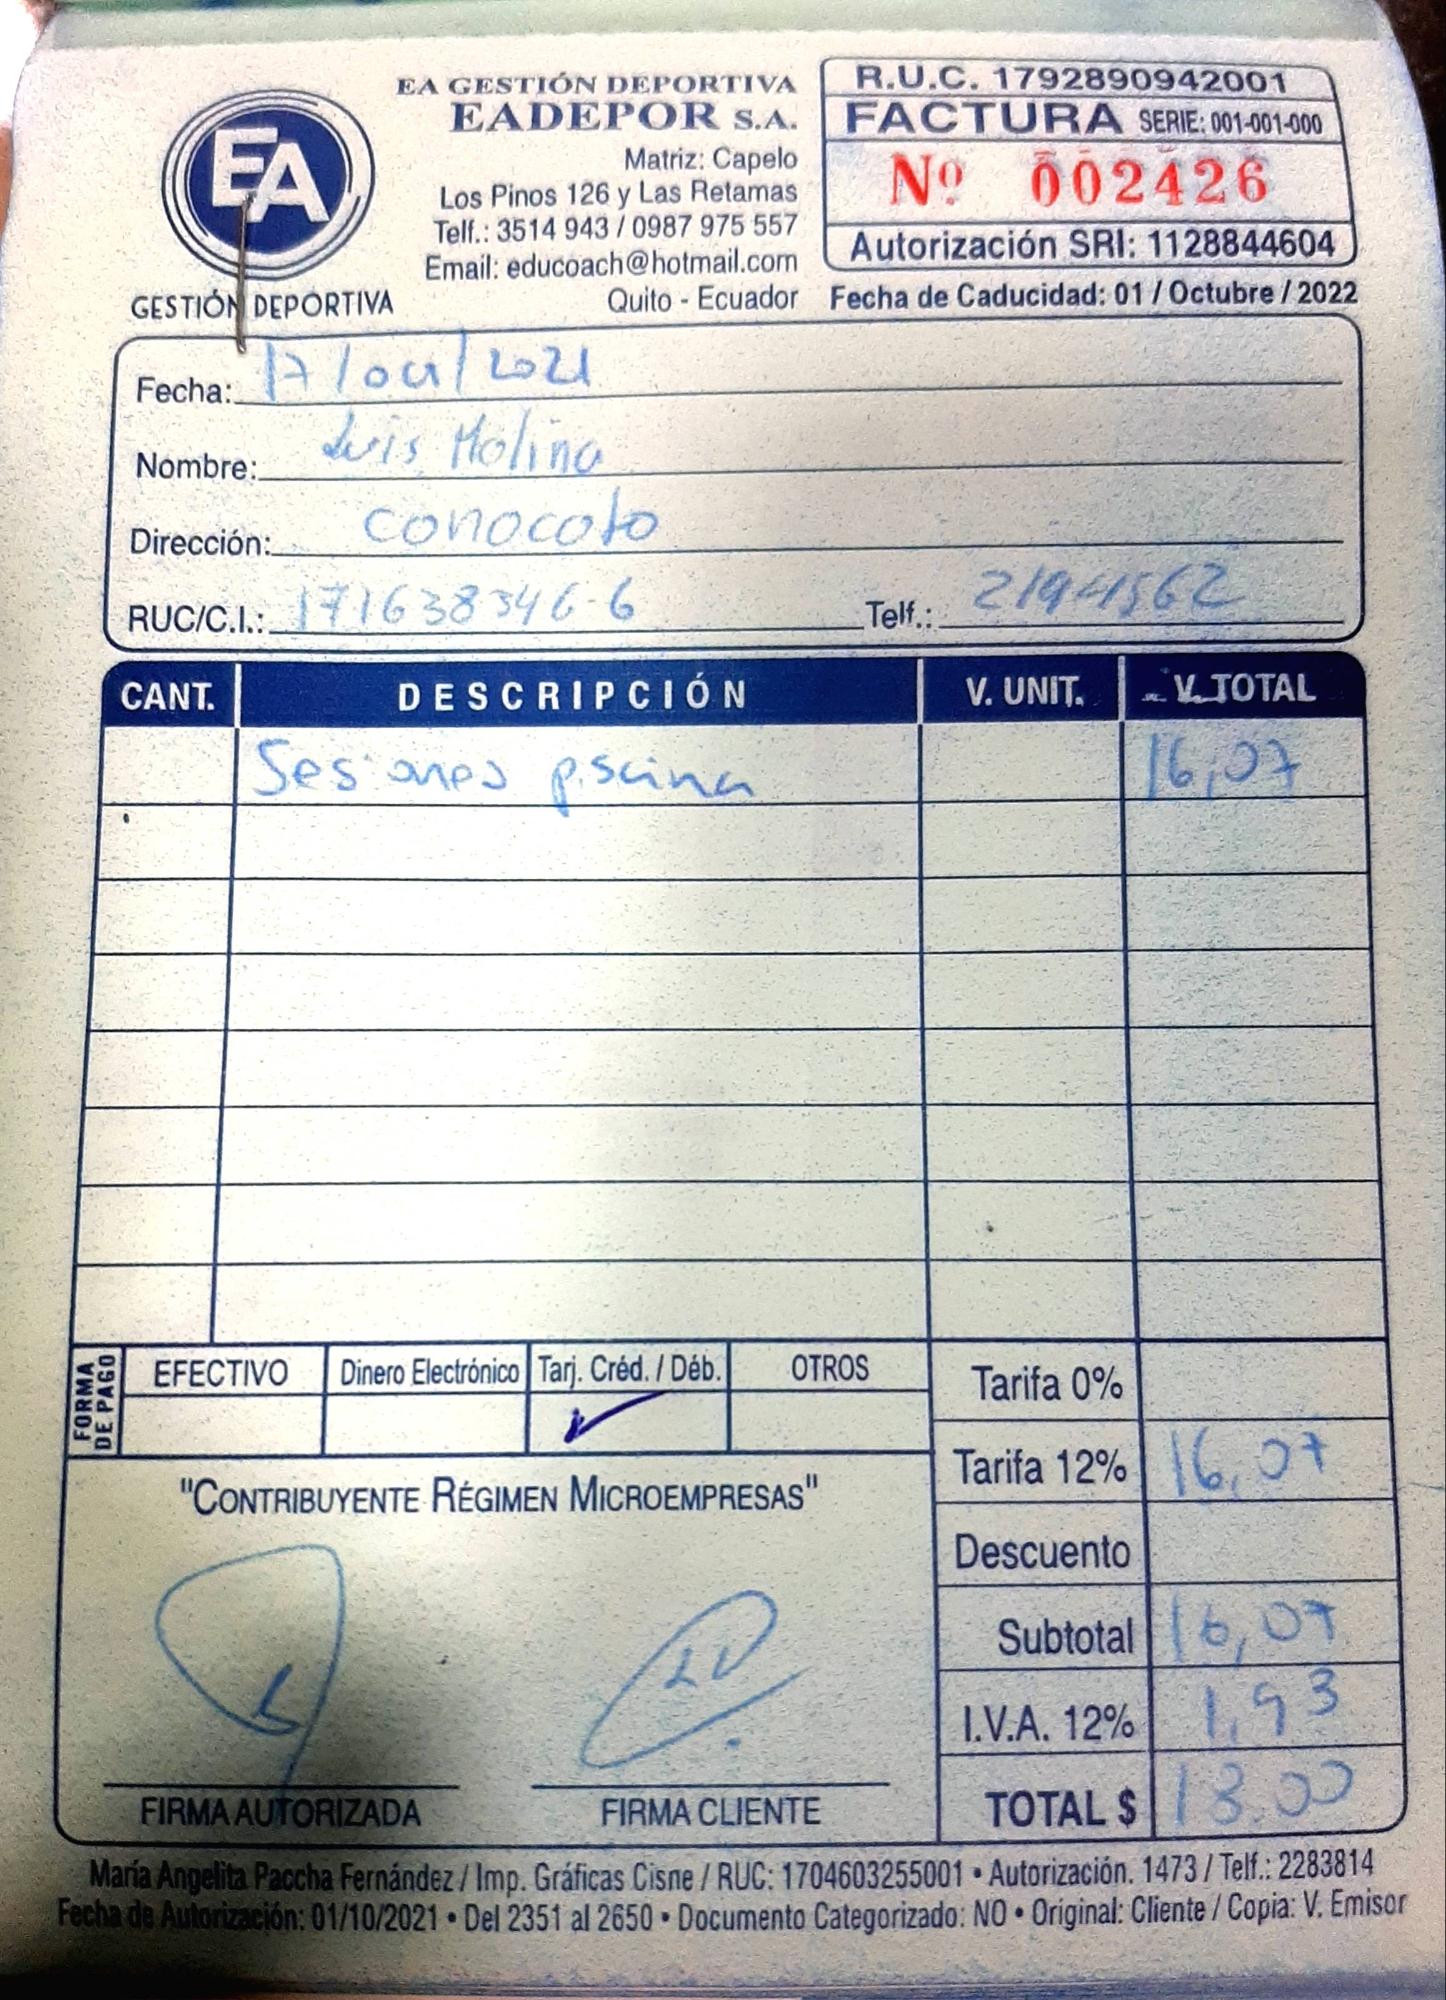 EA
GESTIÓN DEPORTIVA
EA GESTIÓN DEPORTIVA
EADEPOR S.A.
Matriz: Capelo
Los Pinos 126 y Las Retamas
Telf.: 3514 943 / 0987 975 557
Email: educoach@hotmail.com
Quito - Ecuador
R.U.C. 1792890942001
FACTURA SERIE: 001-001-000
Nº 002426
Autorización SRI: 1128844604
Fecha de Caducidad: 01 / Octubre / 2022
Fecha: 17/oct/2021
Nombre: Luis Molina
Dirección: Conocoto
RUC/C.I.: 171638346-6 Telf.:
CANT. DESCRIPCIÓN V. UNIT. V. TOTAL
Sesiones piscina 16,07
FORMA DE PAGO
EFECTIVO Dinero Electrónico Tarj. Créd. / Déb. OTROS
Tarifa 0%
Tarifa 12% 16,07
Descuento
Subtotal 16,07
I.V.A. 12% 1,93
TOTAL $ 18.00
"CONTRIBUYENTE RÉGIMEN MICROEMPRESAS"
FIRMA AUTORIZADA FIRMA CLIENTE
María Angelita Paccha Fernández / Imp. Gráficas Cisne / RUC: 1704603255001 • Autorización. 1473 / Telf.: 2283814
Fecha de Autorización: 01/10/2021 • Del 2351 al 2650 • Documento Categorizado: NO • Original: Cliente / Copia: V. Emisor